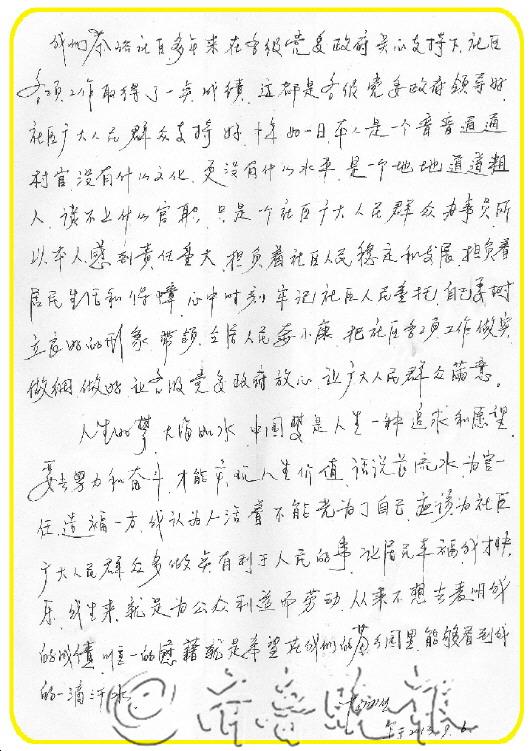 我们茶沿社区多年来在各级党委政府关心支持下,社区
各项工作取得了一点成绩,这都是各级党委政府领导好,
社区广大人民群众支持好,十年如一日,本人是一个普普通通
村官,没有什么文化,更没有什么水平,是一个地地道道粗
人,谈不上什么官职,只是一个社区广大人民群众办事员,所
以本人感到责任重大,担负着社区人民稳定和发展,担负着
居民生活和保障,心中时刻牢记社区人民重托,自己要树
立良好的形象,带领全居人民奔小康,把社区各项工作做实
做细做好,让各级党委政府放心,让广大人民群众满意。
人生的梦,大海的水,中国梦是人生一种追求和愿望,
要去努力和奋斗,才能实现人生价值,话说长流水,为官一
任,造福一方,我认为人活着不能光为了自己,应该为社区
广大人民群众多做点有利于人民的事,让居民幸福我才快
乐,我生来就是为公众利益而劳动,从来不想去表明我
的成绩,唯一的慰藉就是希望在我们的茶乡园里,能够看到我
的一滴汗水。
2013.9.6
@齐鲁晚报